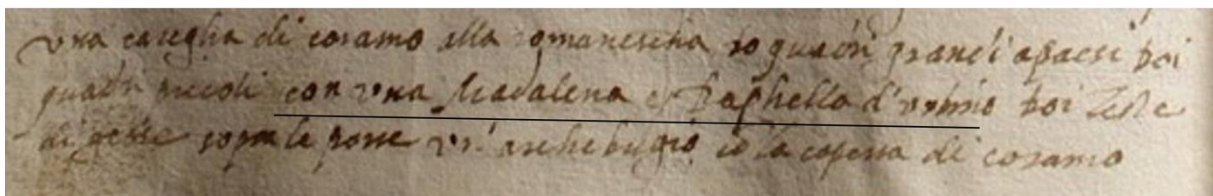 vna caregha di coramo alla romanescha 10 quadri grandi a paesi doi
quadri piccoli con vna Madalena Raphello d'vrbino doi Teste
di gesso sopra le porte vn' archebugio cō la coperta di coramo